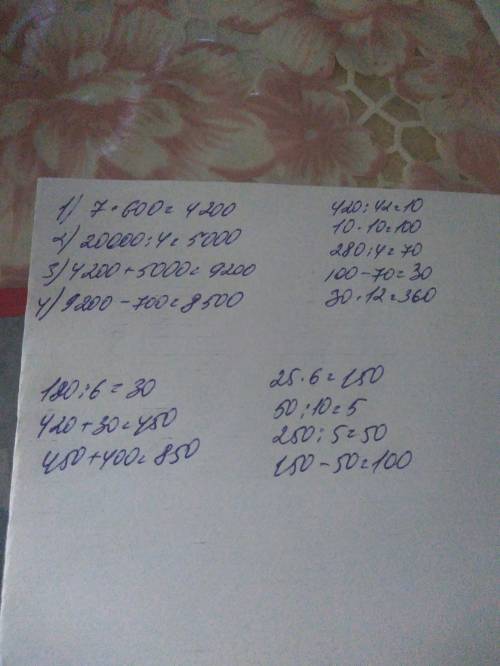 1) 7 · 600 = 4200
2) 20000 : 4 = 5000
3) 4200 + 5000 = 9200
4) 9200 - 700 = 8500
420 : 42 = 10
10 · 10 = 100
280 : 4 = 70
100 - 70 = 30
30 · 12 = 360
180 : 6 = 30
420 + 30 = 450
450 + 400 = 850
25 · 6 = 150
50 : 10 = 5
250 : 5 = 50
150 - 50 = 100